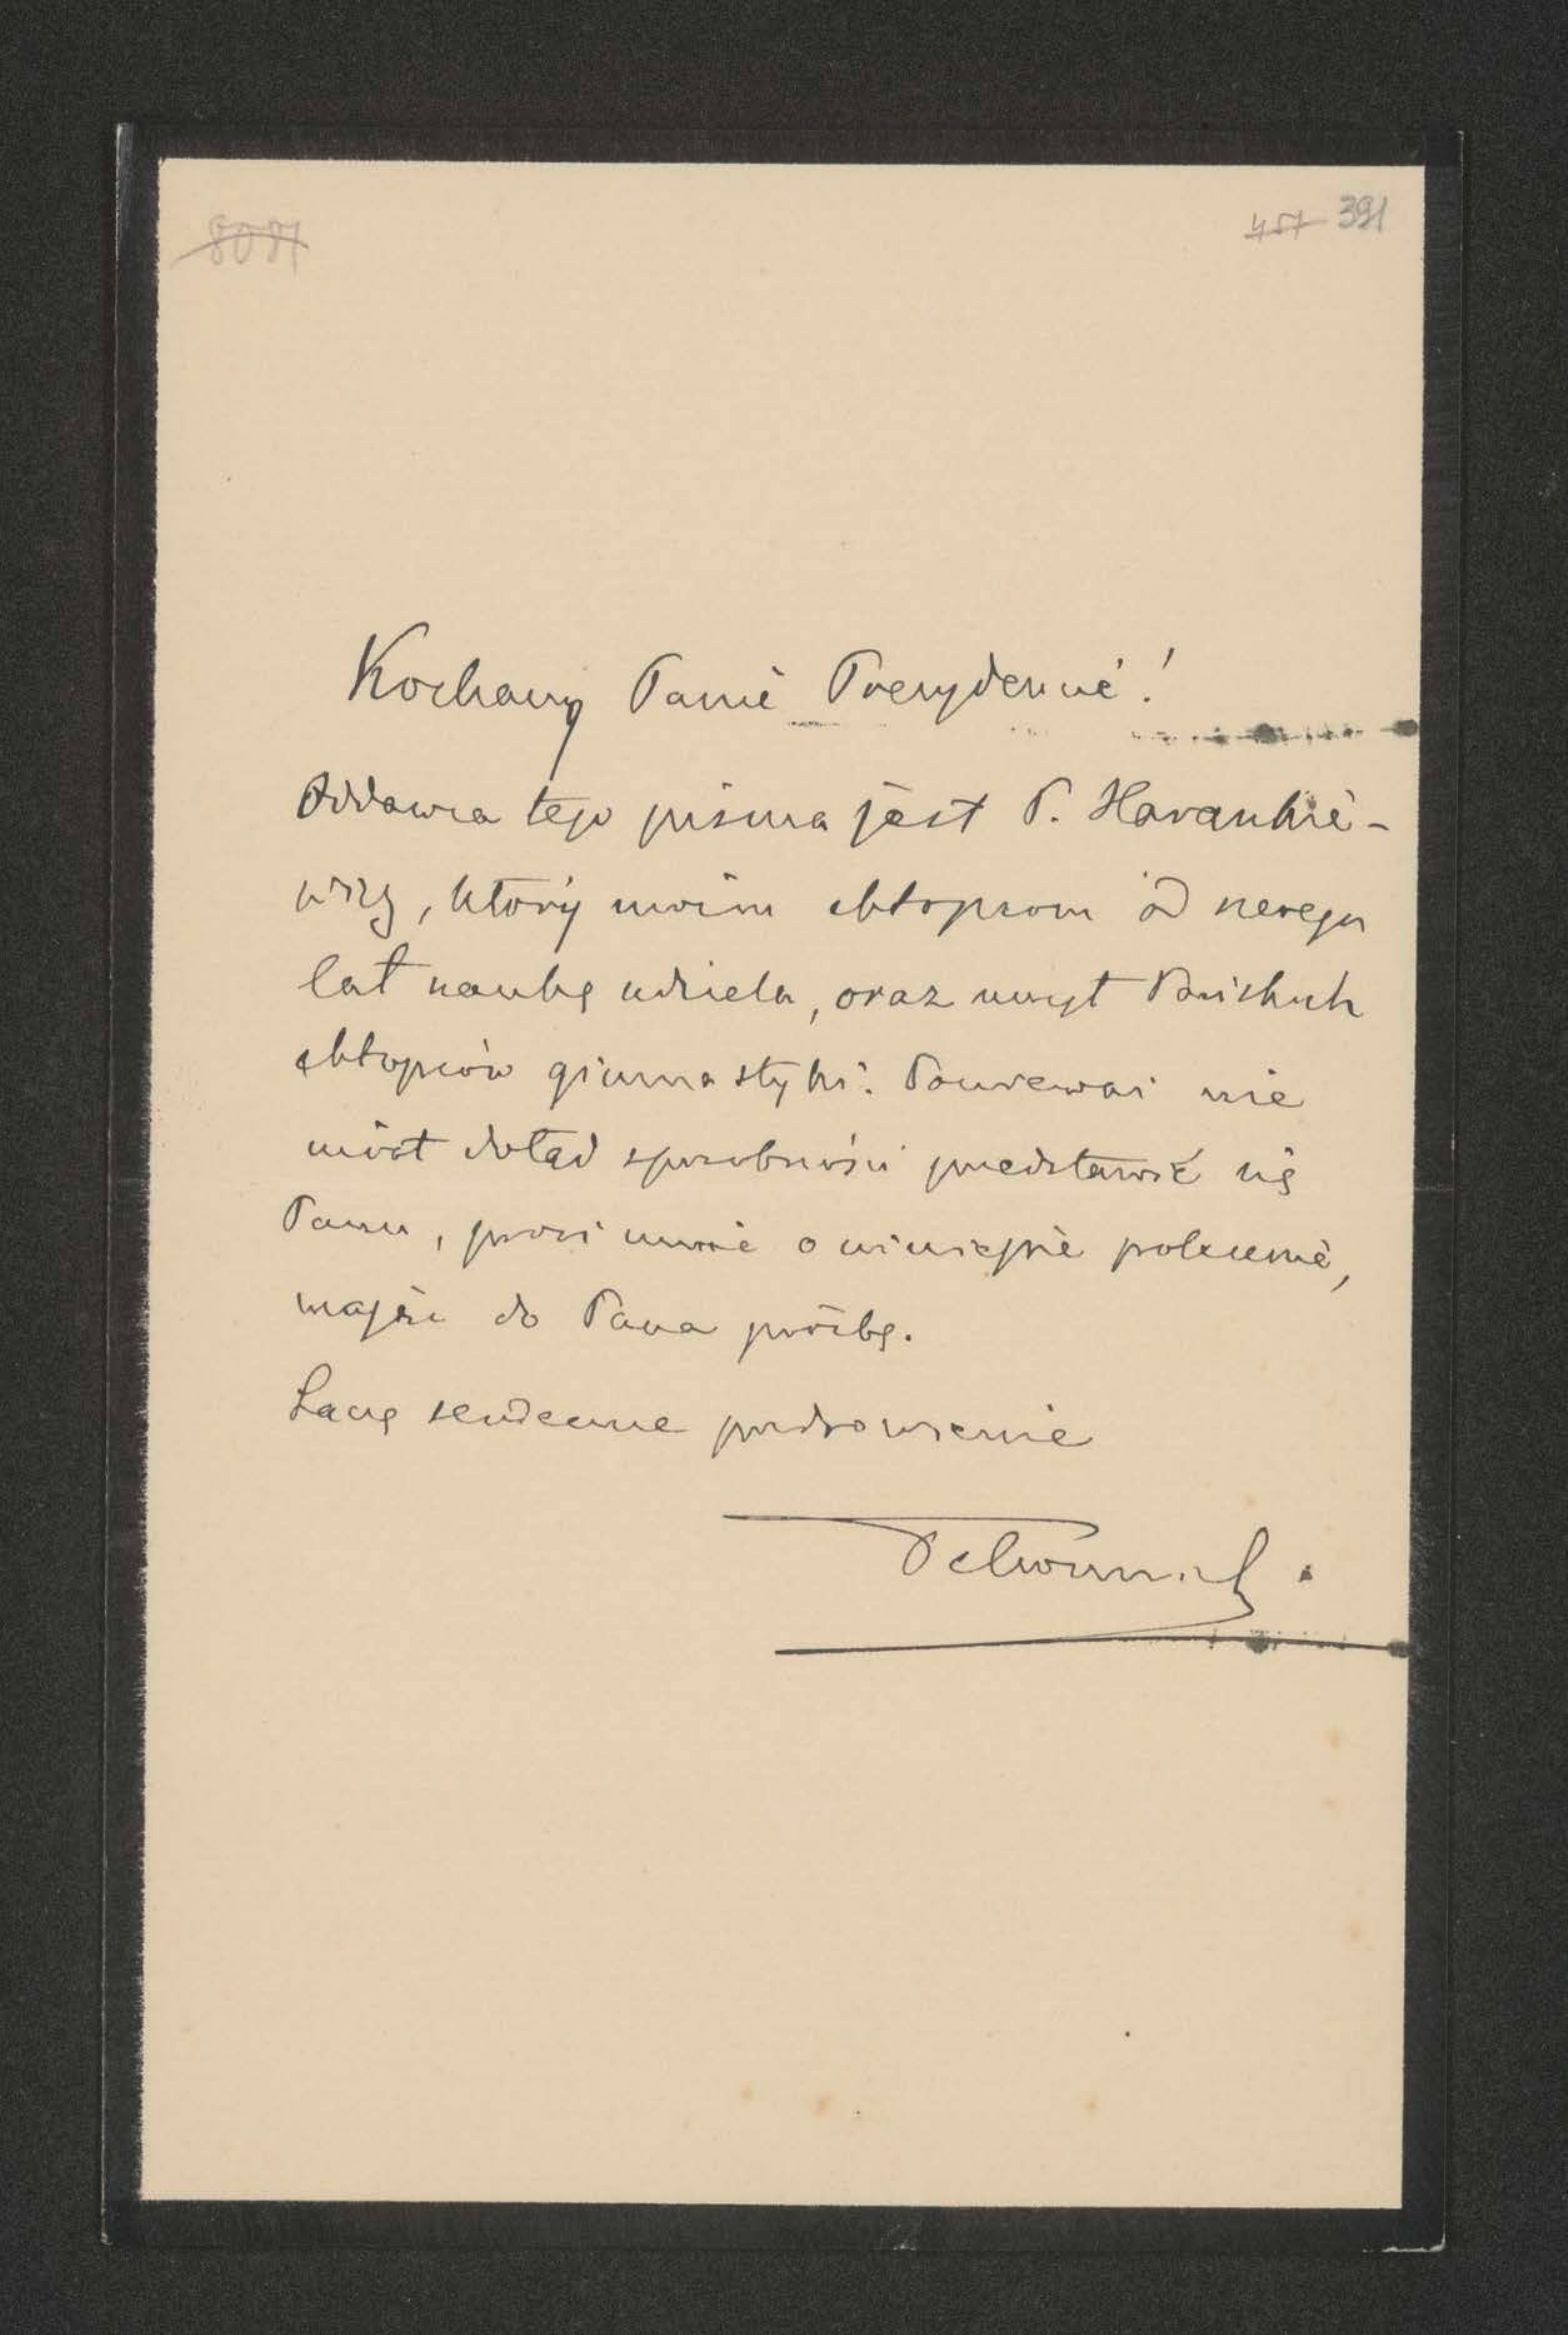 8081
457 391
Kochany Panie Prezydencie!
Oddawca tego pisma jest P. Harankie-
wicz, który moim chłopcom od szeregu
lat naukę udziela, oraz uczył Pańskich
chłopców gimnastyki. Ponieważ nie
miał dotąd sposobności przedstawić się
Panu, prosi mnie o niniejsze polecenie,
mając do Pana prośbę.
Łączę serdeczne pozdrowienie